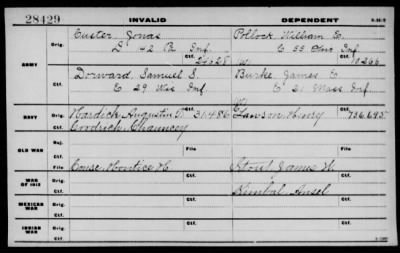 28429 INVALID DEPENDENT 3-562
ARMY
Orig. Custer, Jonas Pollock, William G.
D 42 Pa Inf. C 53 Ohio Inf.
24528 W. 10266
Ctf. Dorward, Samuel S. Burke, James C.
C 29 Wis Inf. C 21 Mass. Inf.
NAVY
Orig. Hardick, Augustin D. 31486 Lawson, Henry 736,695
Ctf. Goodrich, Chauncey
OLD WAR
Suf.
Ctf. File File
WAR OF 1812
Orig. Couse, Hontice H. Stout, James W.
Ctf. Kimbal, Ansel
MEXICAN WAR
Orig.
Ctf.
INDIAN WAR
Orig.
Ctf.